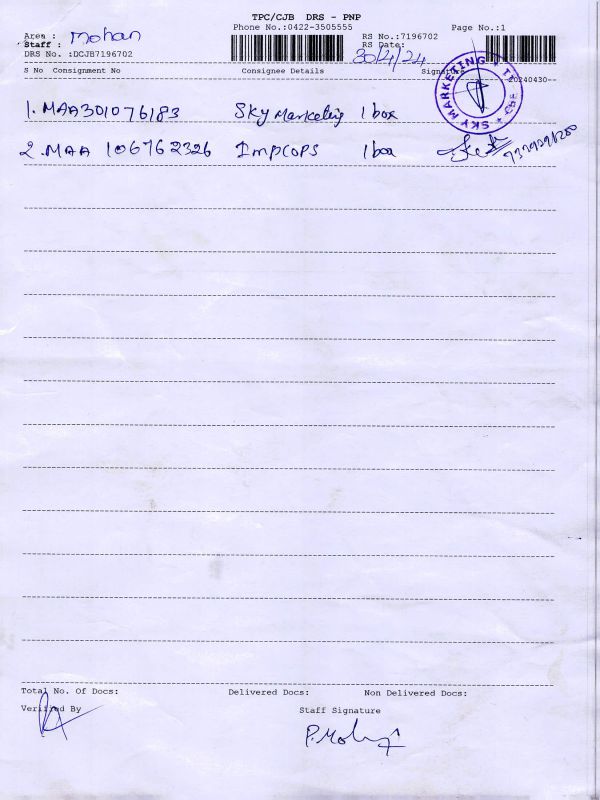 TPC/CJB DRS - PNP
Phone No.:0422-3505555
Page No.:1
Area : Mohan
Staff :
DRS No. :DCJB7196702
RS No.:7196702
RS Date:
30/4/24
S No Consignment No Consignee Details Signature
--20240430--
SKY MARKETING
1. MAA301076183 Sky Marketing 1 box
2. MAA 106762326 Impcops 1 box
Total No. Of Docs: Delivered Docs: Non Delivered Docs:
Verified By Staff Signature